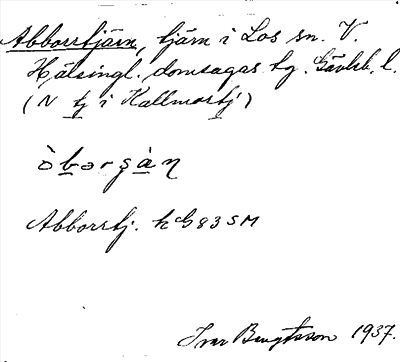 Abborrtjärn, tjärn i Los sn. V.
Hälsingl. domsagas tg. Gävleb. l.
(N tj i Kallmostj)
Abborrtj. k G 83 SM
Ivar Bengtsson 1937.